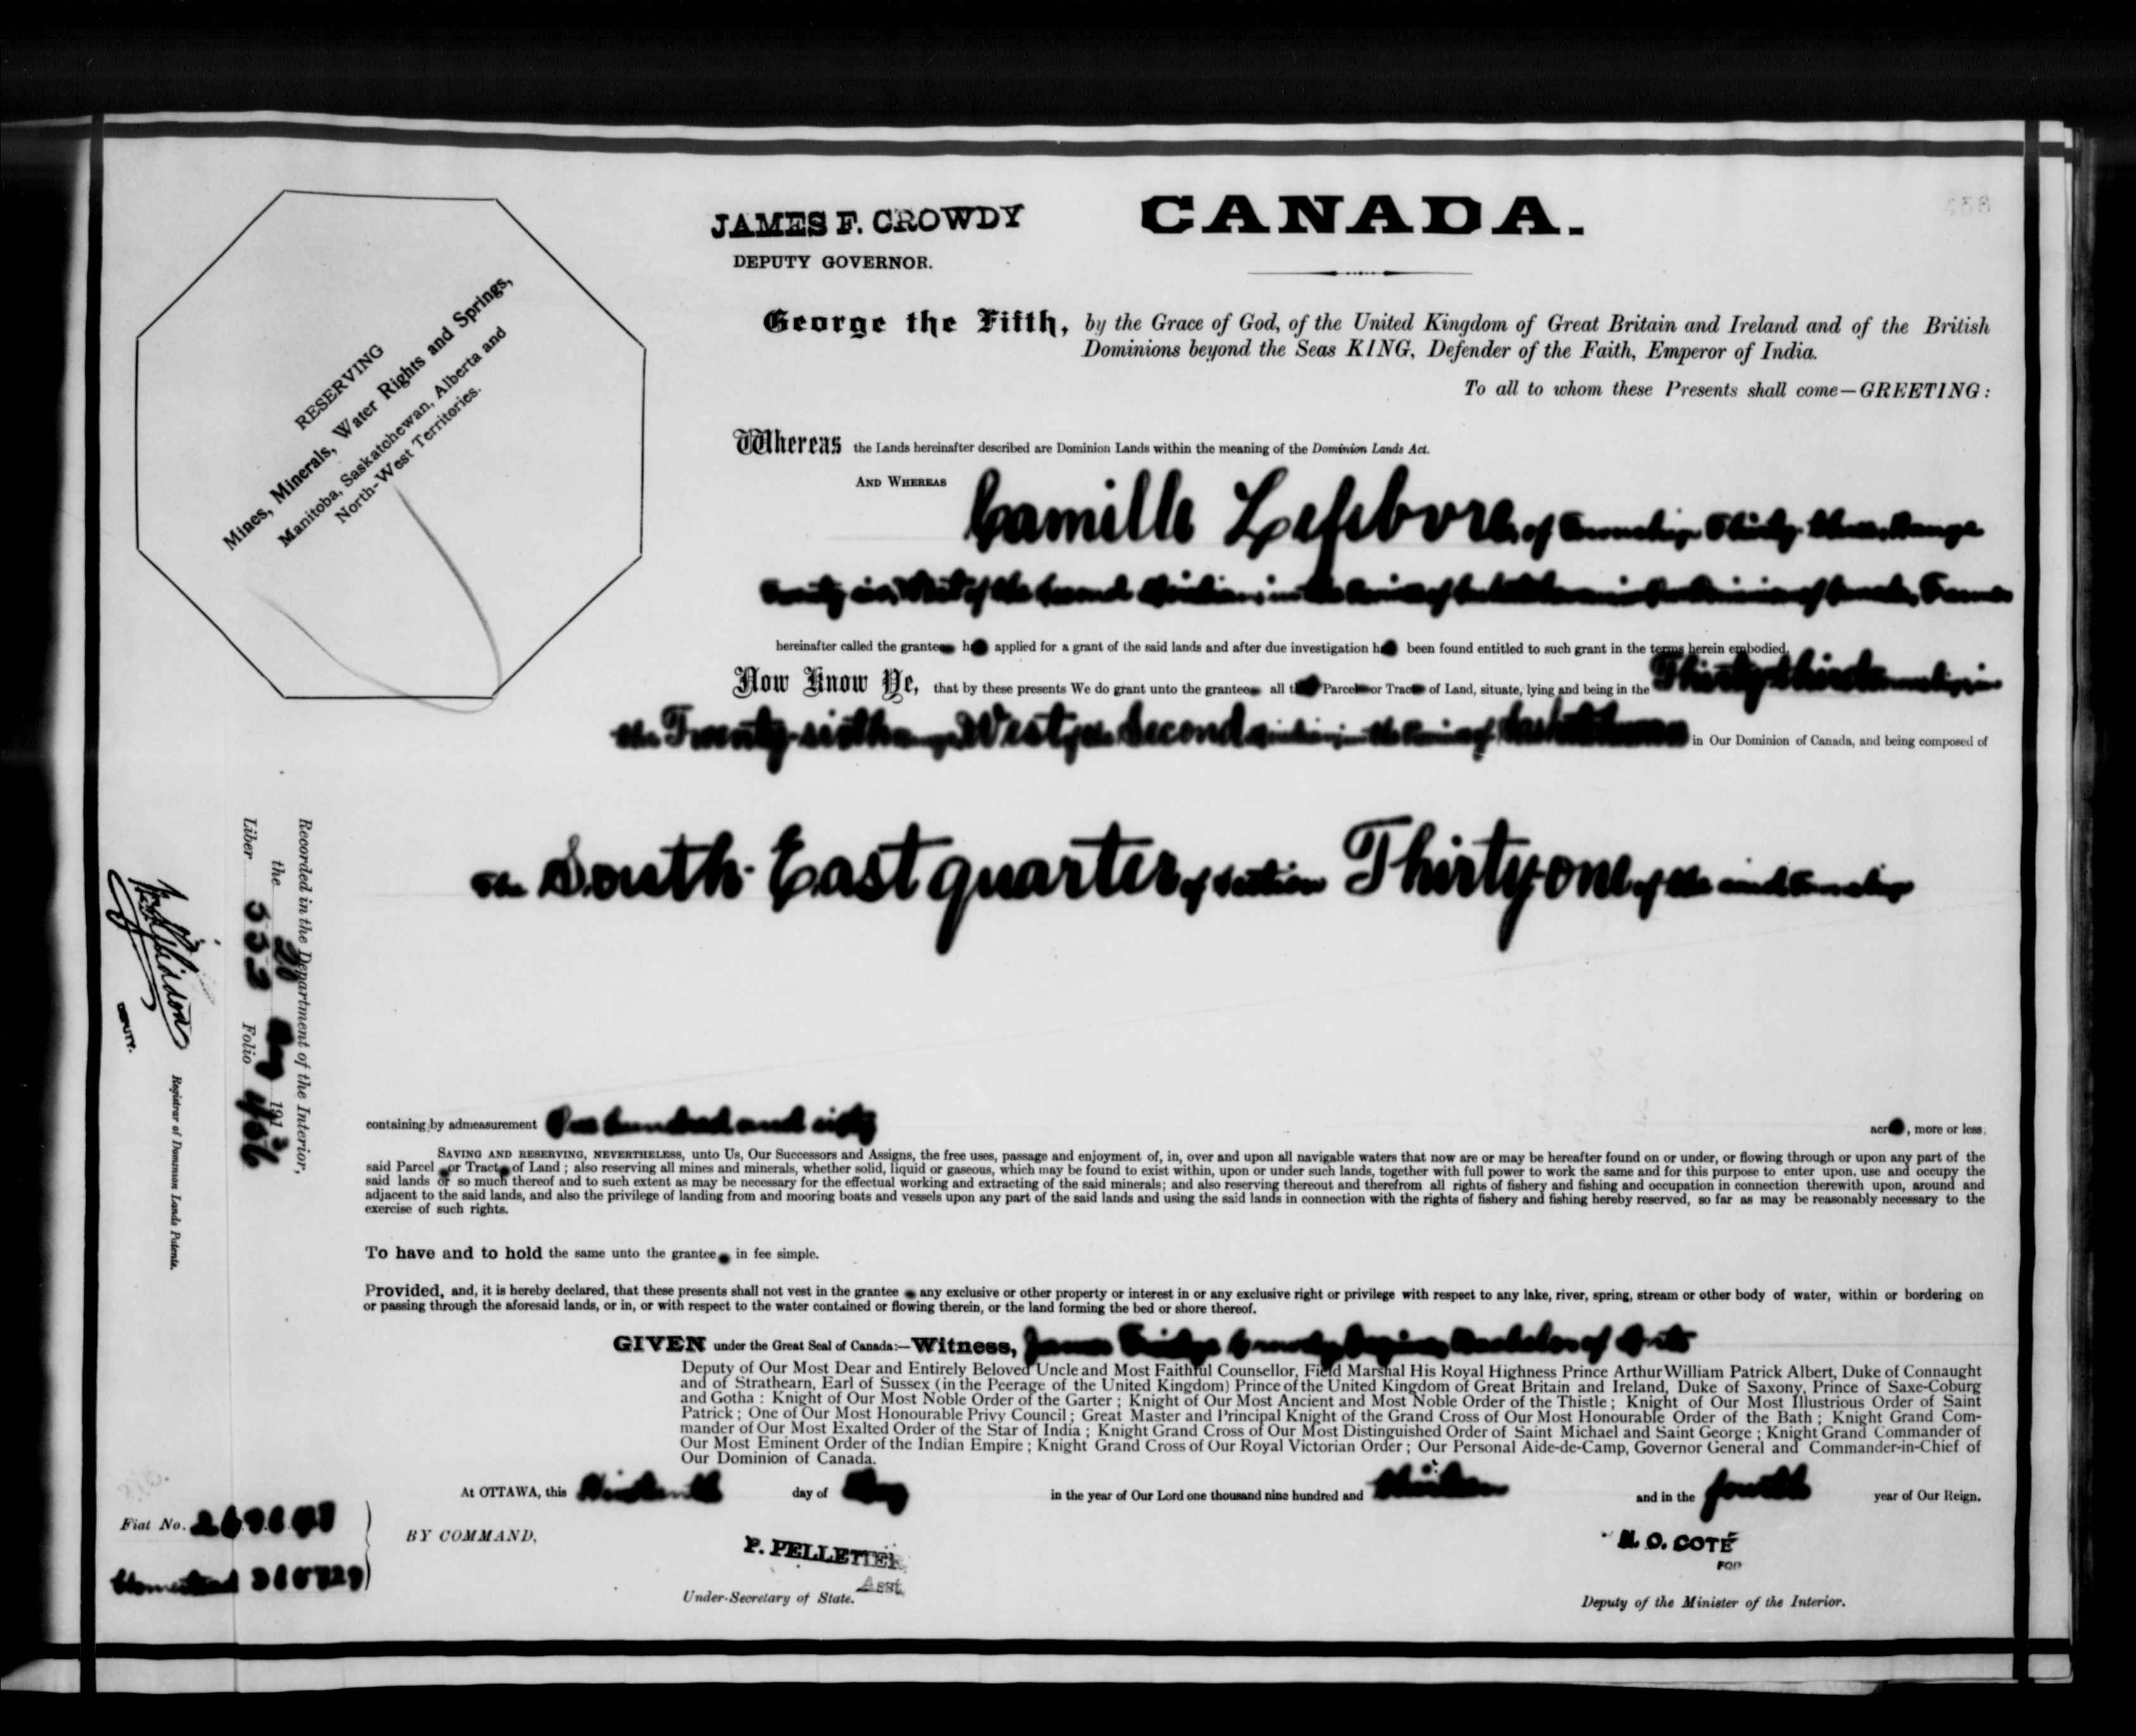 JAMES F. CROWDY
DEPUTY GOVERNOR.
CANADA.
George the Fifth, by the Grace of God, of the United Kingdom of Great Britain and Ireland and of the British
Dominions beyond the Seas KING, Defender of the Faith, Emperor of India.
To all to whom these Presents shall come—GREETING:
RESERVING
Mines, Minerals, Water Rights and Springs,
Manitoba, Saskatchewan, Alberta and
North-West Territories.
Whereas the Lands hereinafter described are Dominion Lands within the meaning of the Dominion Lands Act.
AND WHEREAS Camille Lefebvre, of Township Thirty-three, Range
Twenty-six, West of the Second Meridian, in the Province of Saskatchewan in the Dominion of Canada, Farmer
hereinafter called the grantee h applied for a grant of the said lands and after due investigation h been found entitled to such grant in the terms herein embodied.
Now Know Ye, that by these presents We do grant unto the grantee all t Parcel or Tract of Land, situate, lying and being in the Thirty-third township, in
the Twenty-sixth range, West of the Second Meridian, in the Province of Saskatchewan in Our Dominion of Canada, and being composed of
The South-East quarter of section Thirty-one of the said township
containing by admeasurement One hundred and sixty acr , more or less.
SAVING AND RESERVING, NEVERTHELESS, unto Us, Our Successors and Assigns, the free uses, passage and enjoyment of, in, over and upon all navigable waters that now are or may be hereafter found on or under, or flowing through or upon any part of the
said Parcel or Tract of Land ; also reserving all mines and minerals, whether solid, liquid or gaseous, which may be found to exist within, upon or under such lands, together with full power to work the same and for this purpose to enter upon, use and occupy the
said lands or so much thereof and to such extent as may be necessary for the effectual working and extracting of the said minerals; and also reserving thereout and therefrom all rights of fishery and fishing and occupation in connection therewith upon, around and
adjacent to the said lands, and also the privilege of landing from and mooring boats and vessels upon any part of the said lands and using the said lands in connection with the rights of fishery and fishing hereby reserved, so far as may be reasonably necessary to the
exercise of such rights.
To have and to hold the same unto the grantee in fee simple.
Provided, and, it is hereby declared, that these presents shall not vest in the grantee any exclusive or other property or interest in or any exclusive right or privilege with respect to any lake, river, spring, stream or other body of water, within or bordering on
or passing through the aforesaid lands, or in, or with respect to the water contained or flowing therein, or the land forming the bed or shore thereof.
GIVEN under the Great Seal of Canada:—Witness, James Crowdy Esquire, Bachelor of Arts
Deputy of Our Most Dear and Entirely Beloved Uncle and Most Faithful Counsellor, Field Marshal His Royal Highness Prince Arthur William Patrick Albert, Duke of Connaught
and of Strathearn, Earl of Sussex (in the Peerage of the United Kingdom) Prince of the United Kingdom of Great Britain and Ireland, Duke of Saxony, Prince of Saxe-Coburg
and Gotha : Knight of Our Most Noble Order of the Garter ; Knight of Our Most Ancient and Most Noble Order of the Thistle ; Knight of Our Most Illustrious Order of Saint
Patrick ; One of Our Most Honourable Privy Council ; Great Master and Principal Knight of the Grand Cross of Our Most Honourable Order of the Bath ; Knight Grand Com-
mander of Our Most Exalted Order of the Star of India ; Knight Grand Cross of Our Most Distinguished Order of Saint Michael and Saint George ; Knight Grand Commander of
Our Most Eminent Order of the Indian Empire ; Knight Grand Cross of Our Royal Victorian Order ; Our Personal Aide-de-Camp, Governor General and Commander-in-Chief of
Our Dominion of Canada.
At OTTAWA, this day of in the year of Our Lord one thousand nine hundred and thirteen and in the fourth year of Our Reign.
BY COMMAND,
P. PELLETIER
Asst.
Under-Secretary of State.
N. O. COTÉ
FOR
Deputy of the Minister of the Interior.
Fiat No.
Homestead
Recorded in the Department of the Interior,
the 191
Liber 552 Folio
DEPUTY.
Registrar of Dominion Lands Patents.